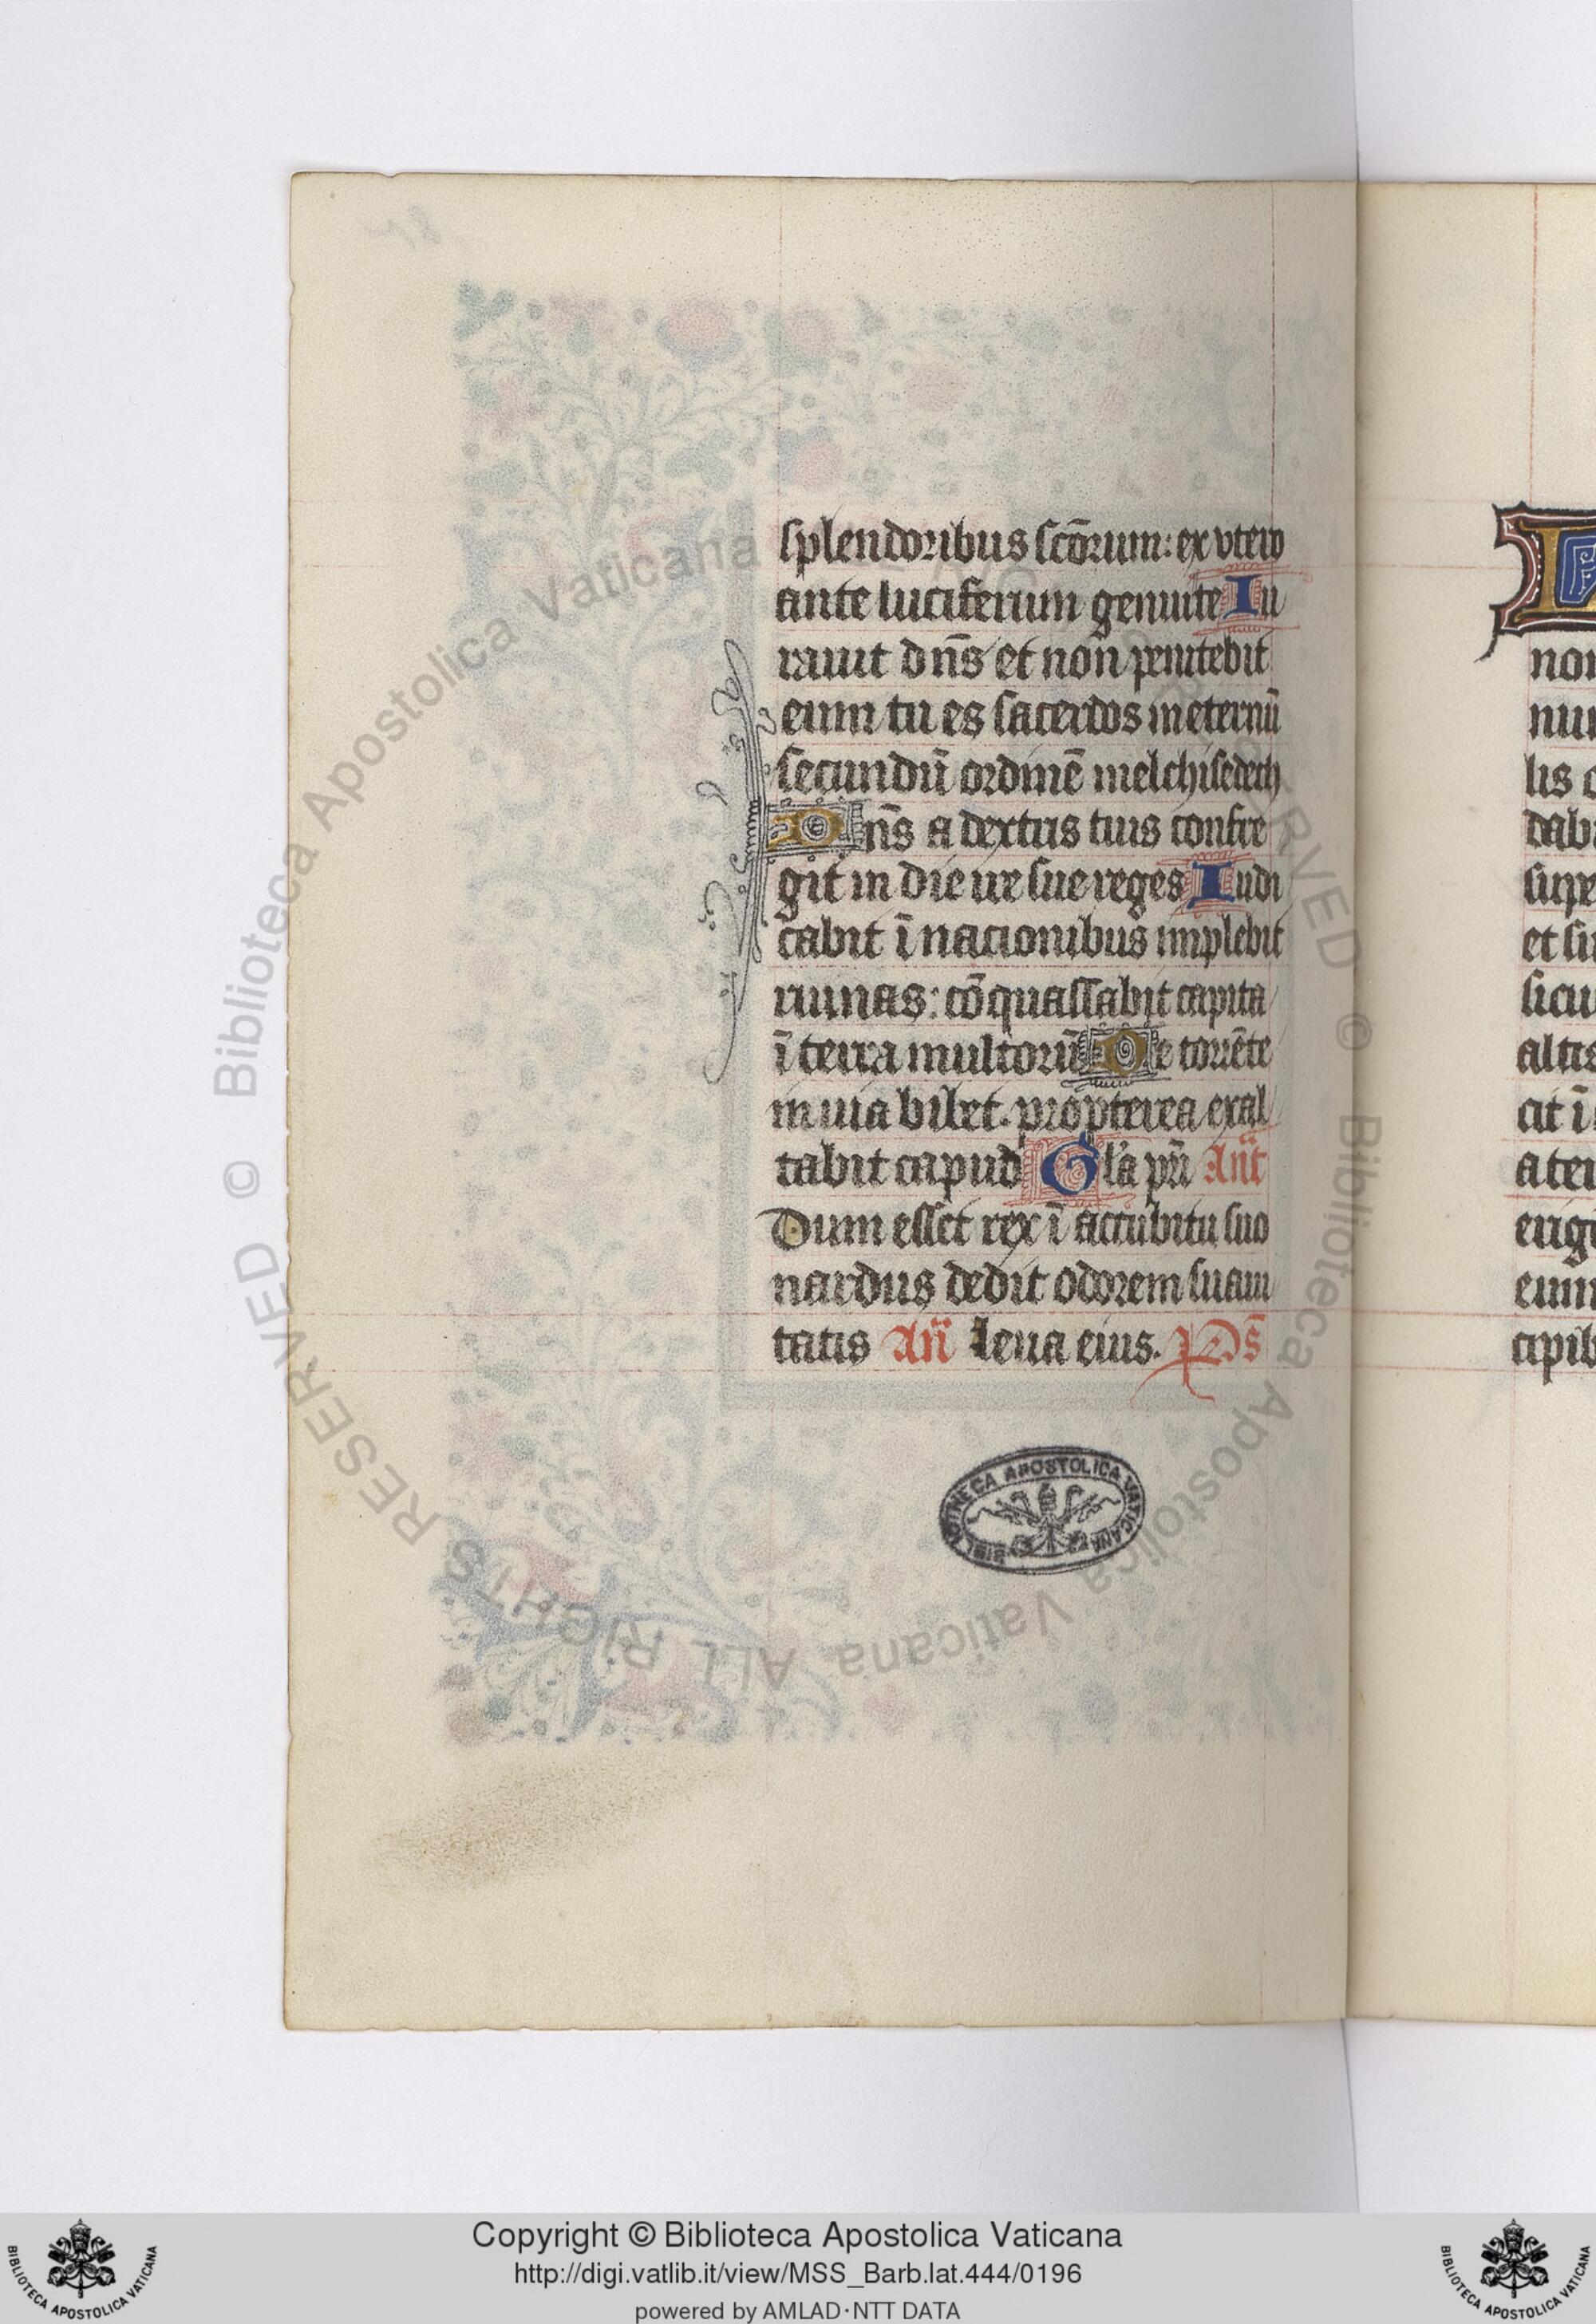 splendoribus scōrum: ex vtero
ante luciferum genui te Iu
rauit dn̄s et non penitebit
eum tu es sacerdos in eternū
secundū ordinē melchisedech
Dn̄s a dextris tuis confre
git in die ire sue reges Iudi
cabit ī nacionibus implebit
ruinas: cōquassabit capita
ī terra multorū De torrēte
in uia bibet. propterea exal
tabit capud Gl'a pr̄i Ant̄
Dum esset rex ī accubitu suo
nardus dedit odorem suaui
tatis An̄ Leua eius. Ps̄
BIBLIOTHECA APOSTOLICA VATICANA
nu
lis
dab
supe
et si
sicu
altis
cit ī
a ter
erig
eum
cipib
© Biblioteca Apostolica Vaticana ALL RIGHTS RESERVED
© Biblioteca Apostolica Vaticana
Copyright © Biblioteca Apostolica Vaticana
http://digi.vatlib.it/view/MSS_Barb.lat.444/0196
powered by AMLAD·NTT DATA
BIBLIOTECA APOSTOLICA VATICANA
BIBLIOTECA APOSTOLICA VATICANA